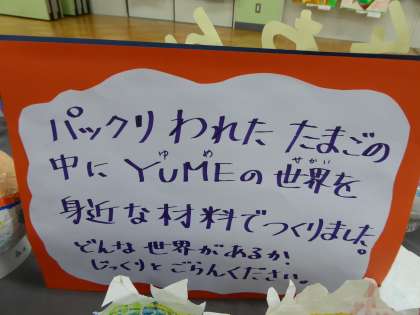 パックリ われた たまごの
中に YUMEの 世界を
身近な材料でつくりました。
どんな世界があるか?
じっくりとごらんください。